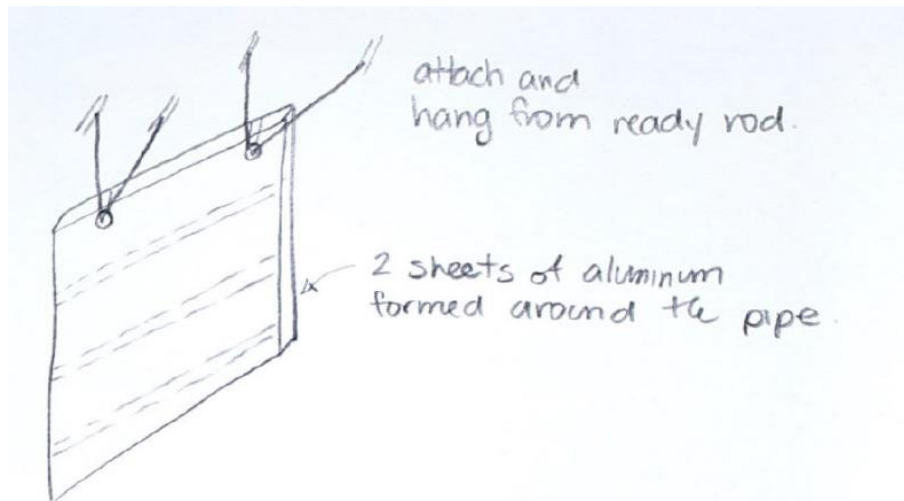 attach and
hang from ready rod.
2 sheets of aluminum
formed around the pipe.